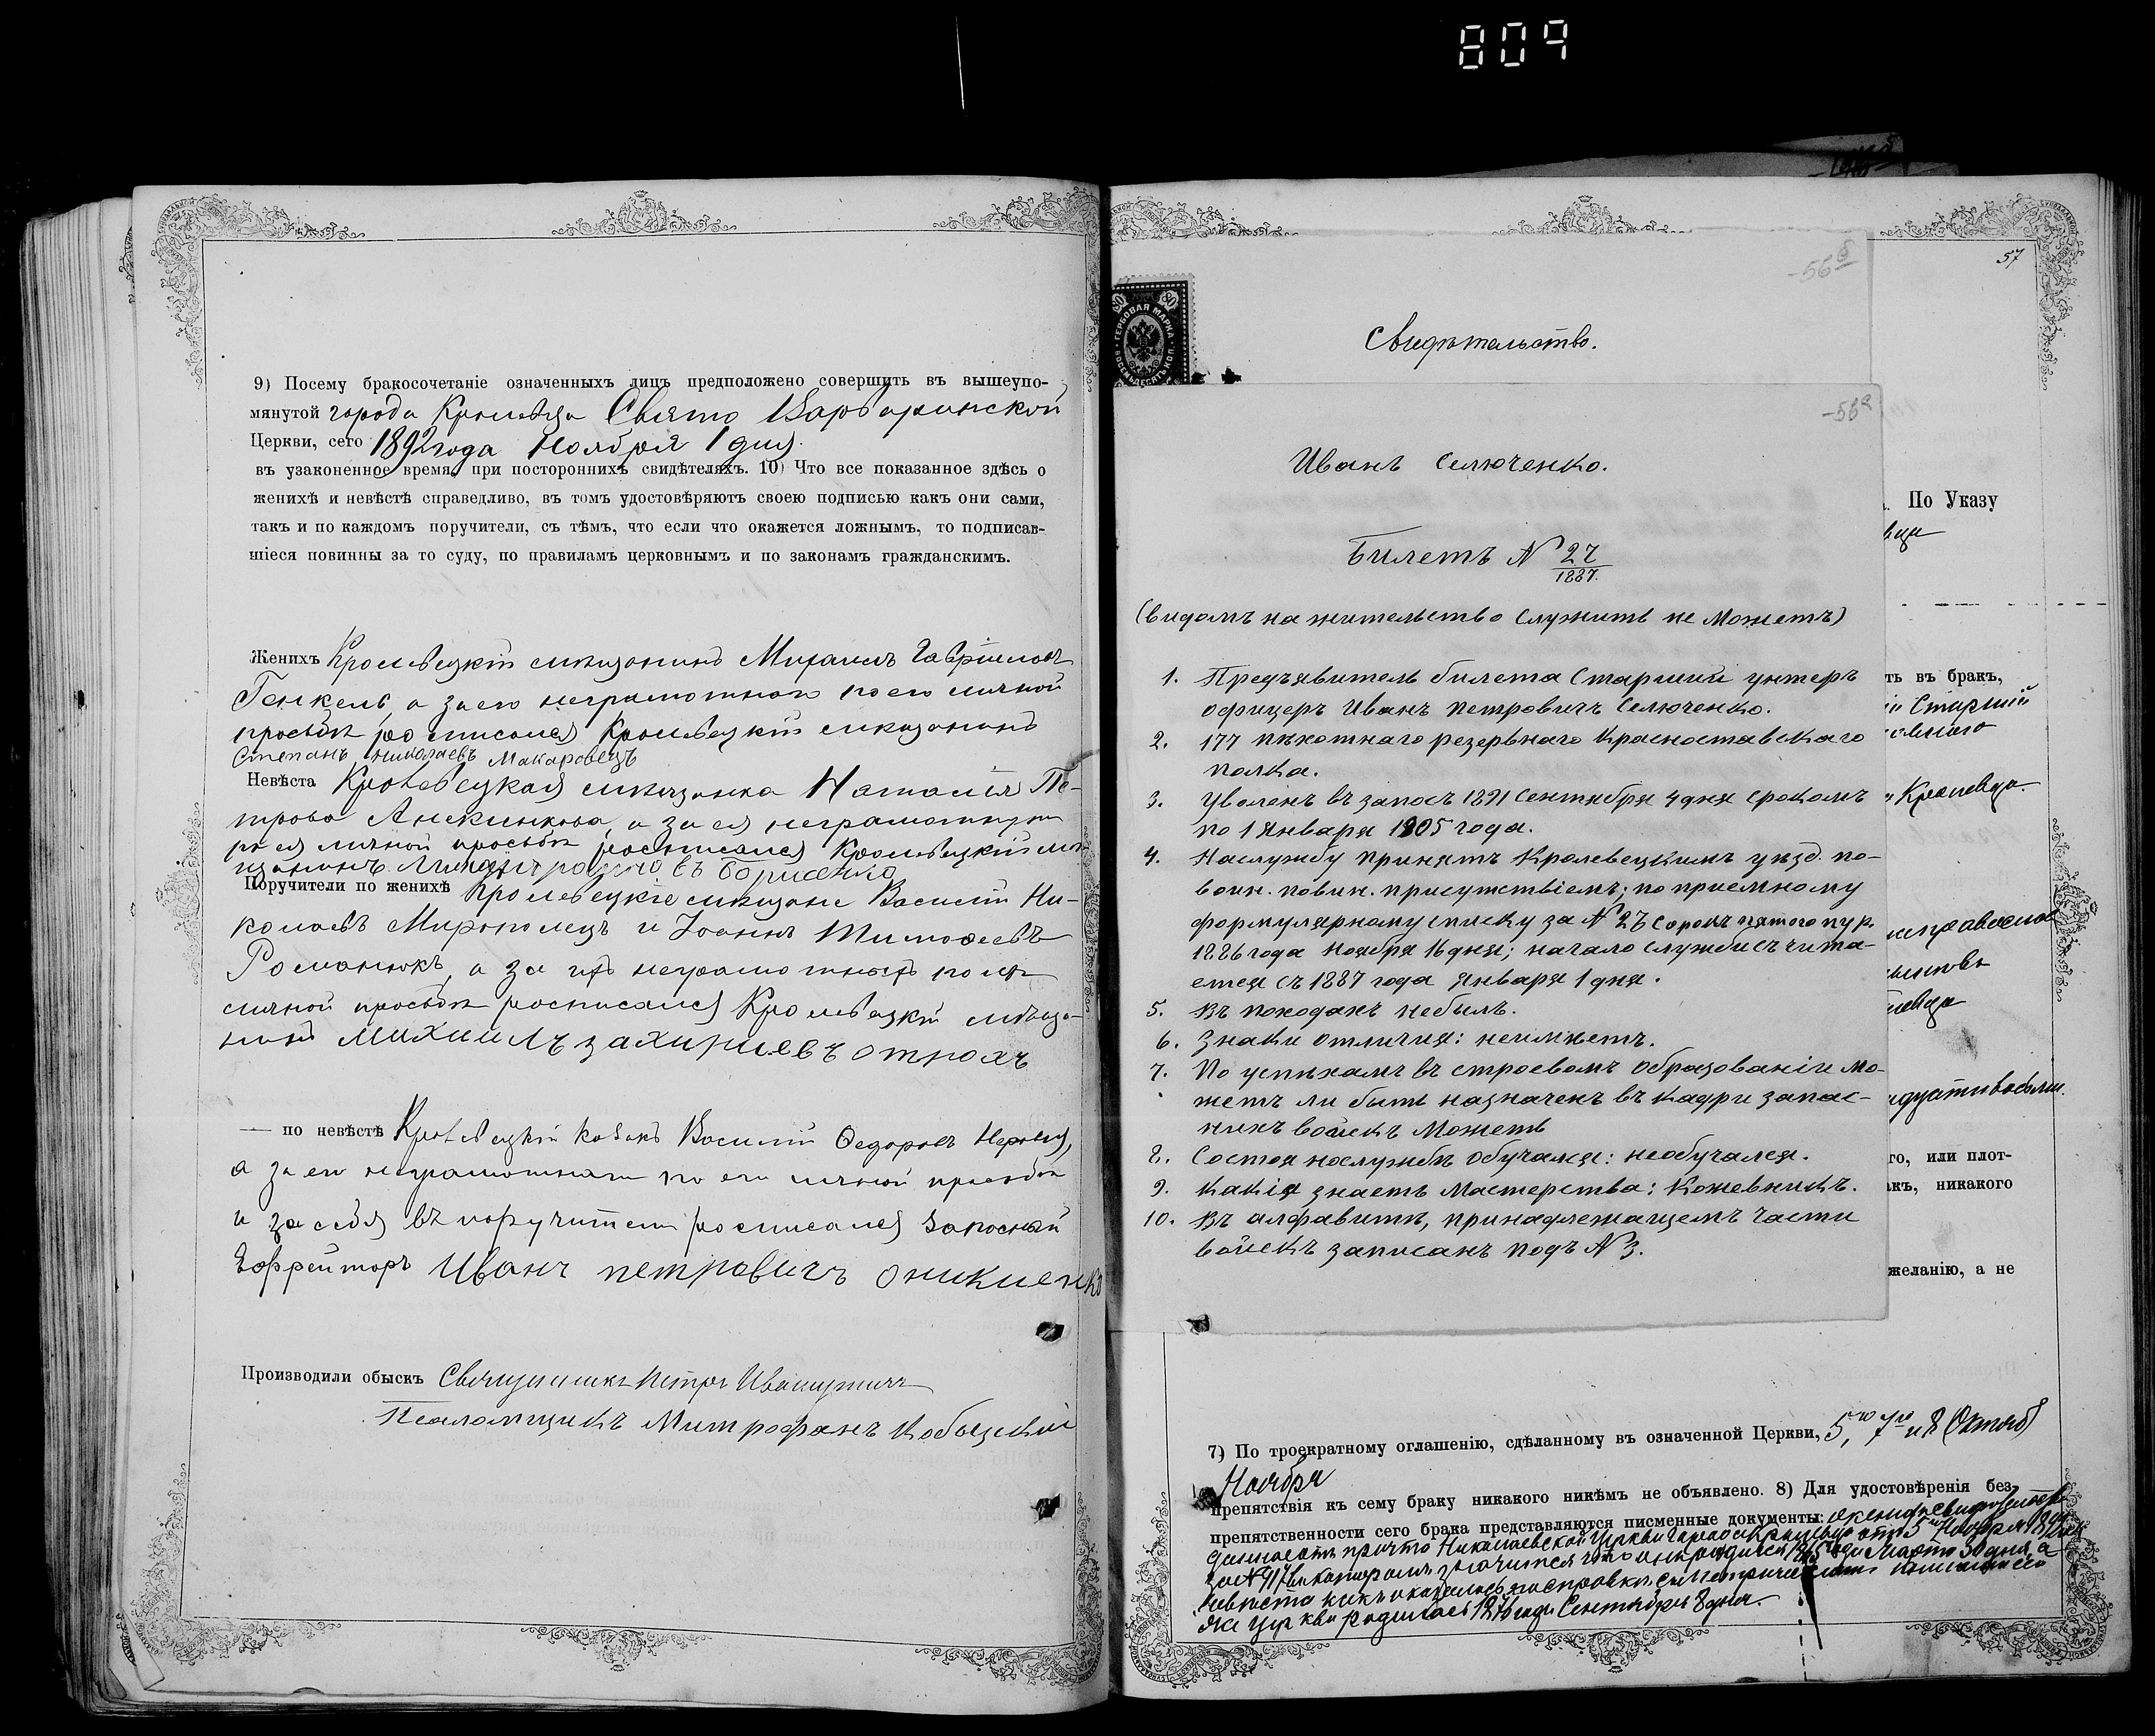 809
9) Посему бракосочетаніе означенныхъ лицъ предположено совершить въ вышеупо-
мянутой города Кролевца Свято Варваринской
Церкви, сего 1892 года Ноября 1 дня.
въ узаконенное время, при постороннихъ свидѣтеляхъ. 10) Что все показанное здѣсь о
женихѣ и невѣстѣ справедливо, въ томъ удостовѣряютъ своею подписью какъ они сами,
такъ и по каждомъ поручители, съ тѣмъ, что если что окажется ложнымъ, то подписав-
шіеся повинны за то суду, по правиламъ церковнымъ и по законамъ гражданскимъ.
Женихъ Кролевецкій мѣщанинъ Михаилъ Гавріиловъ
Генкель, а за его неграмотного по его личной
просьбѣ росписался Кролевецкій мѣщанинъ
Степанъ Николаевъ Макаровецъ
Невѣста Кролевецкая мѣщанка Наталія Пе-
трова а за ея неграмотную
по ея личной просьбѣ росписался Кролевецкій мѣ-
щанинъ
Поручители по женихѣ Кролевецкіе мѣщане Василій Ни-
колаевъ Мирополецъ и Іоаннъ Тимофеевъ
Романюкъ, а за ихъ неграмотность по ихъ
личной просьбѣ росписался Кролевецкій мѣща-
нинъ Михиилъ Захириевъ Отрохъ
— по невѣстѣ Кролевецкій козакъ Василій Федоровъ
а за его неграмотнаго по его личной просьбѣ
и за себя въ поручители росписался запосный
Ефрейторъ Иванъ Петровичъ Оникиенко
Производили обыскъ Священникъ Петръ
Псаломщикъ Митрофанъ Кобыцскій
57
-56б
ГЕРБОВАЯ МАРКА
80 80
Свидѣтельство.
-56а
Иванъ Селюченко.
Билетъ N 27
1887.
(видомъ на жительство служить не можетъ)
1. Предъявитель билета Старший унтеръ
офицеръ Иванъ Петровичъ Селюченко.
2. 177 пѣхотнаго резервнаго Красноставскаго
полка.
3. Уволенъ въ запасъ 1891 Сентября 4 дня срокомъ
по 1 Января 1905 года.
4. На службу принятъ Кролевецкимъ уѣзд. по-
воин. повин. присутствіемъ; по приемному
формулярному списку за N 27 Сорокъ пятого пур.
1886 года Ноября 16 дня; начало службы счита-
ется съ 1887 года Января 1 дня.
5. Въ походахъ небылъ.
6. Знаки отличия: неимѣетъ.
7. По успѣхамъ въ строевомъ образованіи мо-
жетъ ли быть назначенъ въ кадри запас-
ныхъ войскъ Можетъ
8. Состоя наслужбѣ обучался: необучался.
9. Какія знаетъ мастерства: Кожевникъ.
10. Въ алфавитѣ, принадлежащемъ части
войскъ записанъ подъ N 3.
По Указу
ть въ бракъ,
Старшій
Кролевца
го, или плот-
акъ, никакого
желанію, а не
7) По троекратному оглашенію, сдѣланному въ означенной Церкви, 5, 7го и 8 Октяб
Ноября
препятствія къ сему браку никакого никѣмъ не объявлено. 8) Для удостовѣрения без-
препятственности сего брака представляются писменные документы:
причто Николаевской Церкви города Кролевца отъ 5 Ноября 1892
за N 917 въ которомъ значится что онъ родился Марта 30 дня, а
невѣста какъ оказалось по справки съ метрическими
же церкви родилась 1876 года Сентября 8 дня.